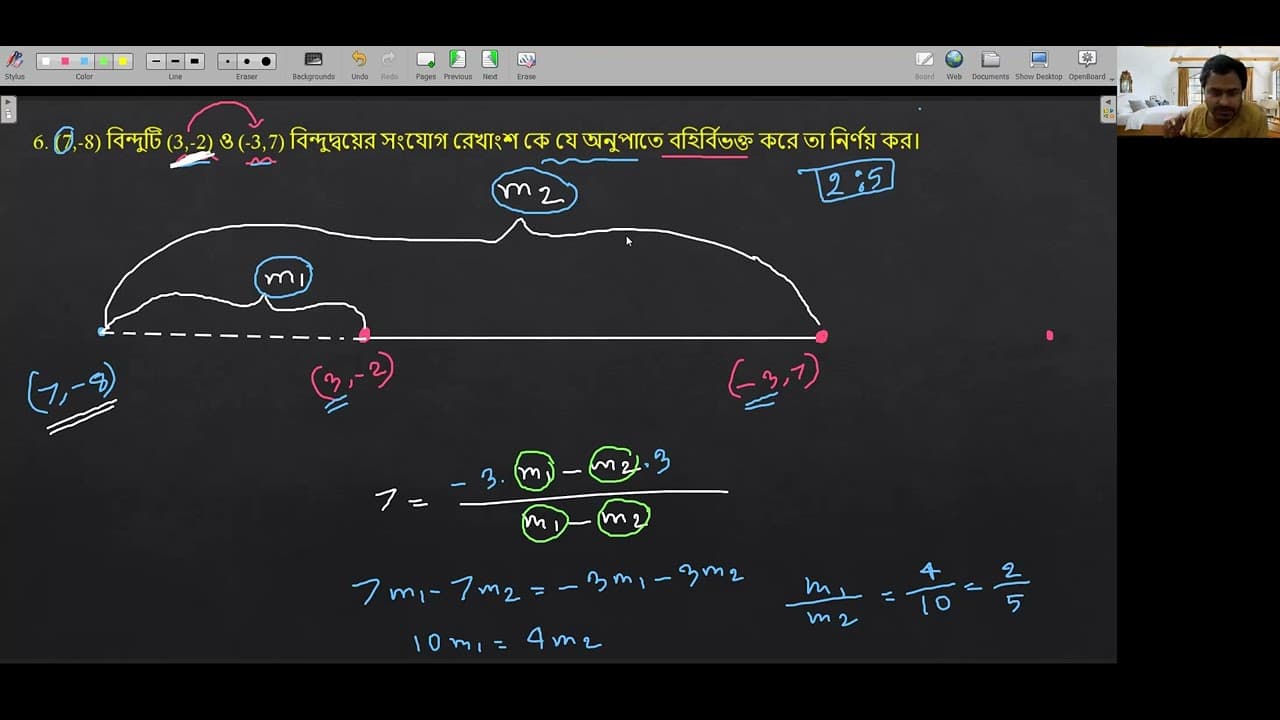 Stylus Color Line Eraser Backgrounds Undo Redo Pages Previous Next Erase Board Web Documents Show Desktop OpenBoard
6. (7,-8) বিন্দুটি (3,-2) ও (-3,7) বিন্দুদ্বয়ের সংযোগ রেখাংশ কে যে অনুপাতে বহির্বিভক্ত করে তা নির্ণয় কর।
2:5
m2
m1
(7,-8) (3,-2) (-3,7)
-3.m1 - m2.3
7 =
m1 - m2
7m1 - 7m2 = -3m1 - 3m2
m1/m2 = 4/10 = 2/5
10m1 = 4m2